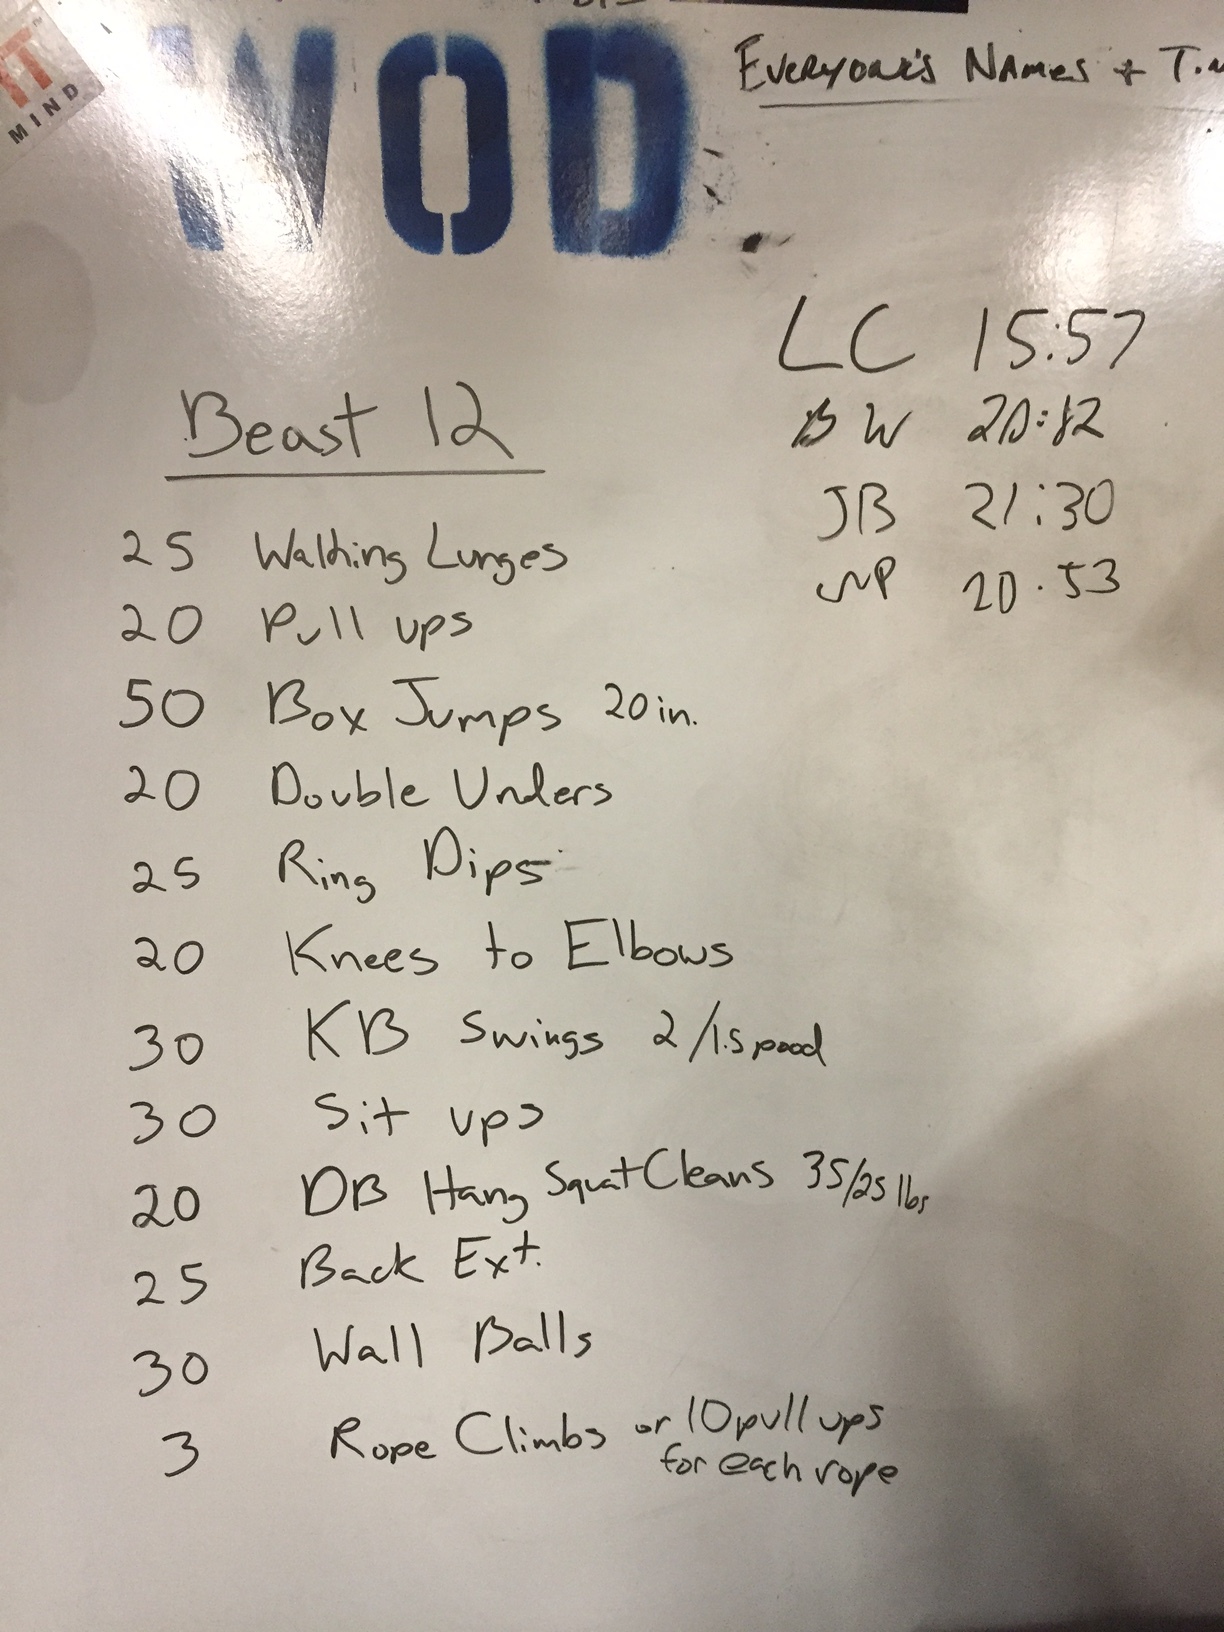 IT
MIND
WOD
Everyone's Names +
LC 15:57
BW
JB 21:30
20.53
Beast 12
25 Walking Lunges
20 Pull ups
50 Box Jumps 20in.
20 Double Unders
25 Ring Dips
20 Knees to Elbows
30 KB Swings 2/1.5 pood
30 Sit ups
20 DB Hang Squat Cleans 35/25 lbs
25 Back Ext.
30 Wall Balls
3 Rope Climbs or 10 pull ups
for each rope